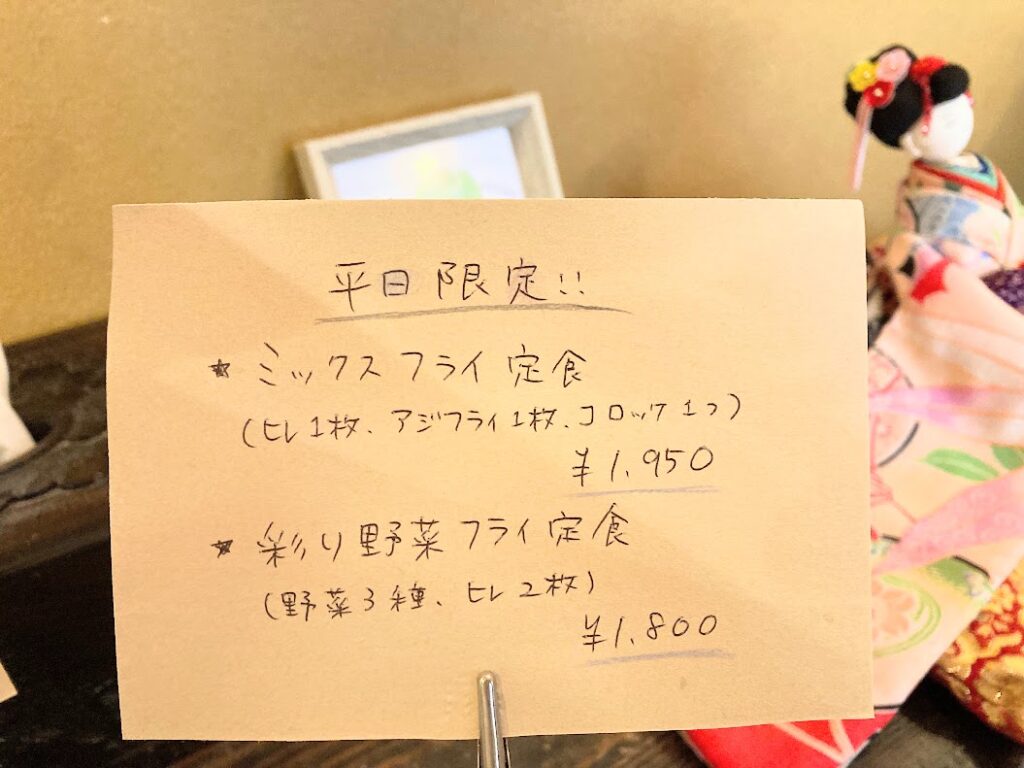 平日限定!!
★ ミックスフライ定食
(ヒレ1枚、アジフライ1枚、コロッケ1つ)
¥1,950
★ 彩り野菜フライ定食
(野菜3種、ヒレ2枚)
¥1,800